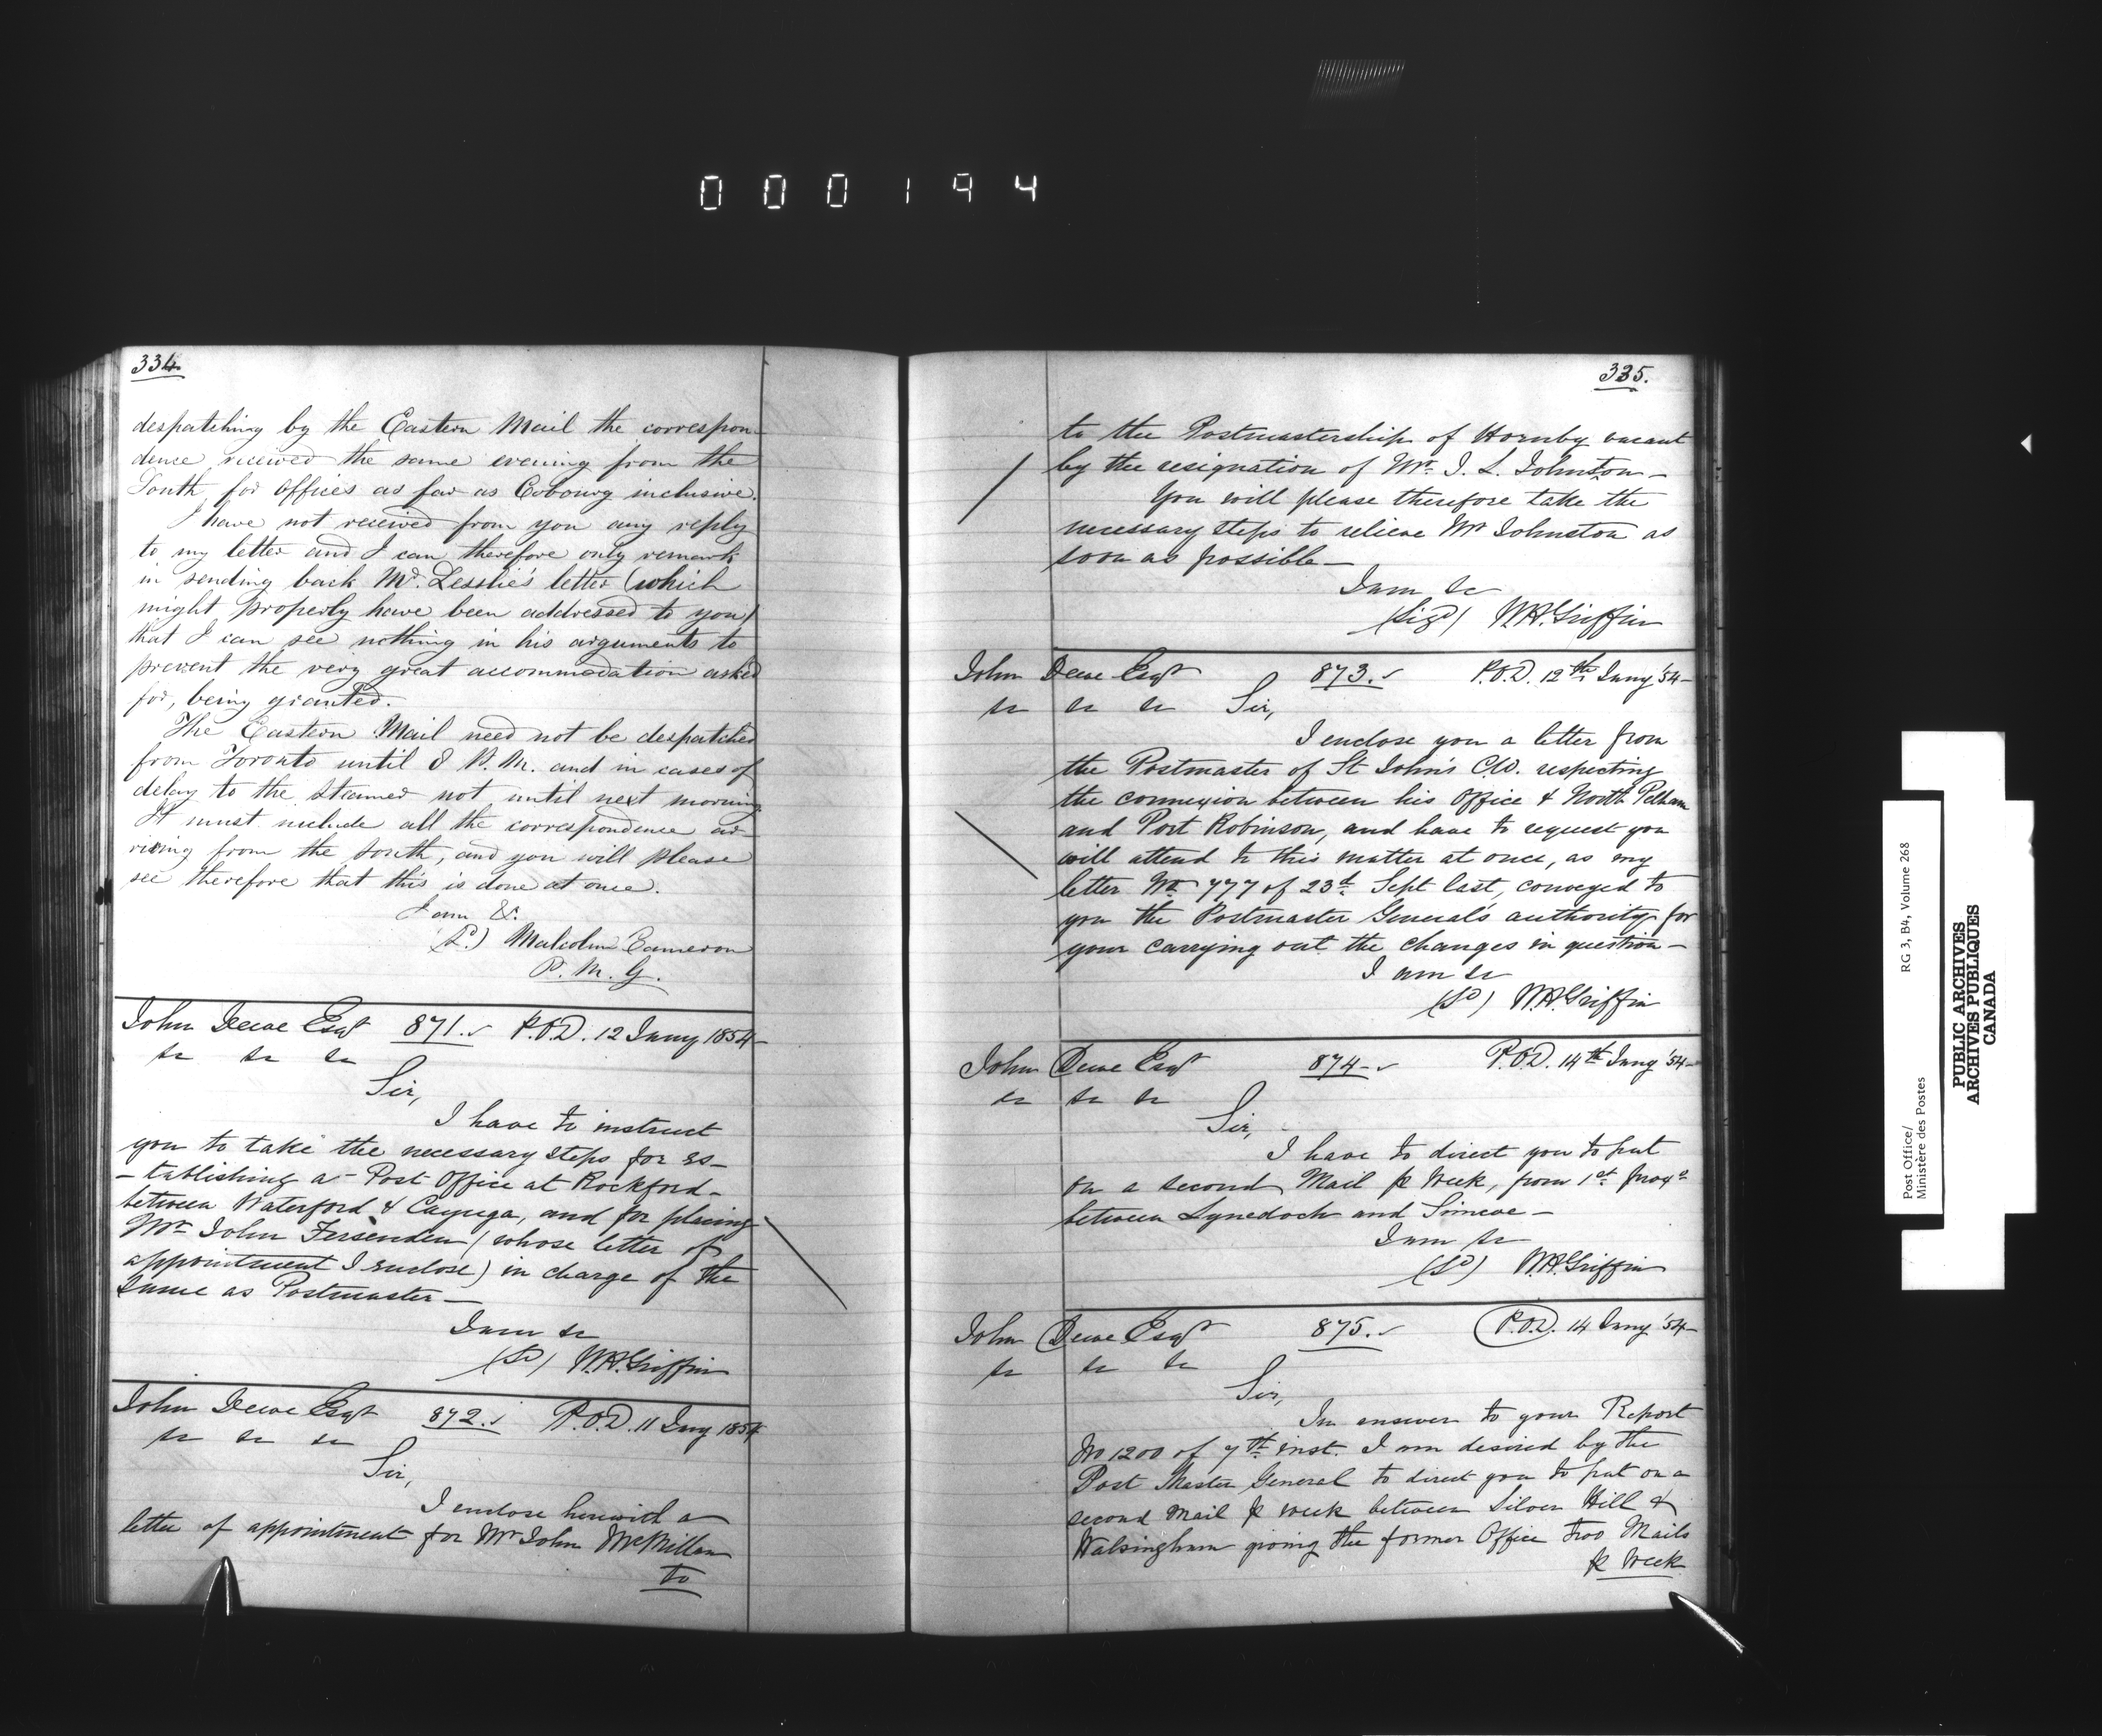 000194
334
despatching by the Eastern Mail the correspon
dence received the same evening from the
South, for offices as far as Cobourg inclusive.
I have not received from you any reply
to my letter and I can therefore only remark
in sending back Mr. Lesslie's letter (which
might properly have been addressed to you)
that I can see nothing in his arguments to
prevent the very great accommodation asked
for, being granted.
The Eastern Mail need not be despatched
from Toronto until 8 P.M. and in cases of
delay to the Steamer not until next morning
It must include all the correspondence ar-
riving from the South, and you will please
see therefore that this is done at once.
I am &c.
(Sd.) Malcolm Cameron
P.M.G.
John Dewe Esqr 871. P.O.D. 12 Jany 1854
&c &c &c
Sir,
I have to instruct
you to take the necessary steps for es-
-tablishing a Post Office at Rockford-
between Waterford & Cayuga, and for placing
Mr John Fessenden (whose letter of
appointment I enclose) in charge of the
same as Postmaster-
I am &c
(Sd) W.H. Griffin
John Dewe Esqr 872. P.O.D. 11 Jany 1854
&c &c &c
Sir,
I enclose herewith a
letter of appointment for Mr John McMillan
to
335.
to the Postmastership of Hornby vacant
by the resignation of Mr. J. L. Johnston-
You will please therefore take the
necessary steps to relieve Mr Johnston as
soon as possible-
I am &c
(Sigd) W.H. Griffin
John Dewe Esqr 873. P.O.D. 12th Jany '54-
&c &c &c Sir,
I enclose you a letter from
the Postmaster of St John's C.W. respecting
the connexion between his Office & North Pelham
and Port Robinson, and have to request you
will attend to this matter at once, as my
letter No 777 of 23d Sept last, conveyed to
you the Postmaster General's authority for
your carrying out the changes in question-
I am &c
(Sd) W.H. Griffin
John Dewe Esqr 874- P.O.D. 14th Jany '54-
&c &c &c
Sir,
I have to direct you to put
on a second Mail p Week, from 1st proxo
between Lynedoch and Simcoe-
I am &c
(Sd) W.H. Griffin
John Dewe Esqr 875. P.O.D. 14 Jany '54-
&c &c &c
Sir,
In answer to your Report
No 1200 of 7th inst. I am desired by the
Post Master General to direct you to put on a
second Mail p week between Silver Hill &
Walsingham giving the former Office two Mails
p Week
Post Office/ RG 3, B4, Volume 268
Ministère des Postes
PUBLIC ARCHIVES
ARCHIVES PUBLIQUES
CANADA